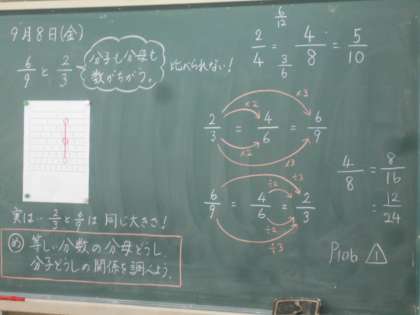 9月8日(金)
6/9 と 2/3
分子も分母も
数がちがう。
比べられない!
実は… 2/3 と 6/9 は 同じ大きさ!
め 等しい分数の分母どうし、
分子どうしの関係を調べよう。
2/3 = 4/6 = 6/9
×2 ×3
×2 ×3
6/9 = 4/6 = 2/3
÷3 ÷2
÷2 ÷3
6/12
2/4 = 4/8 = 5/10
3/6
4/8 = 8/16
= 12/24
Prob 1